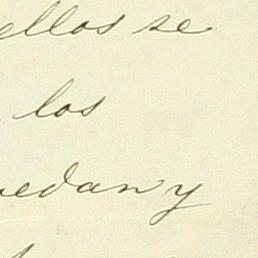 ellos se
los
uedan y